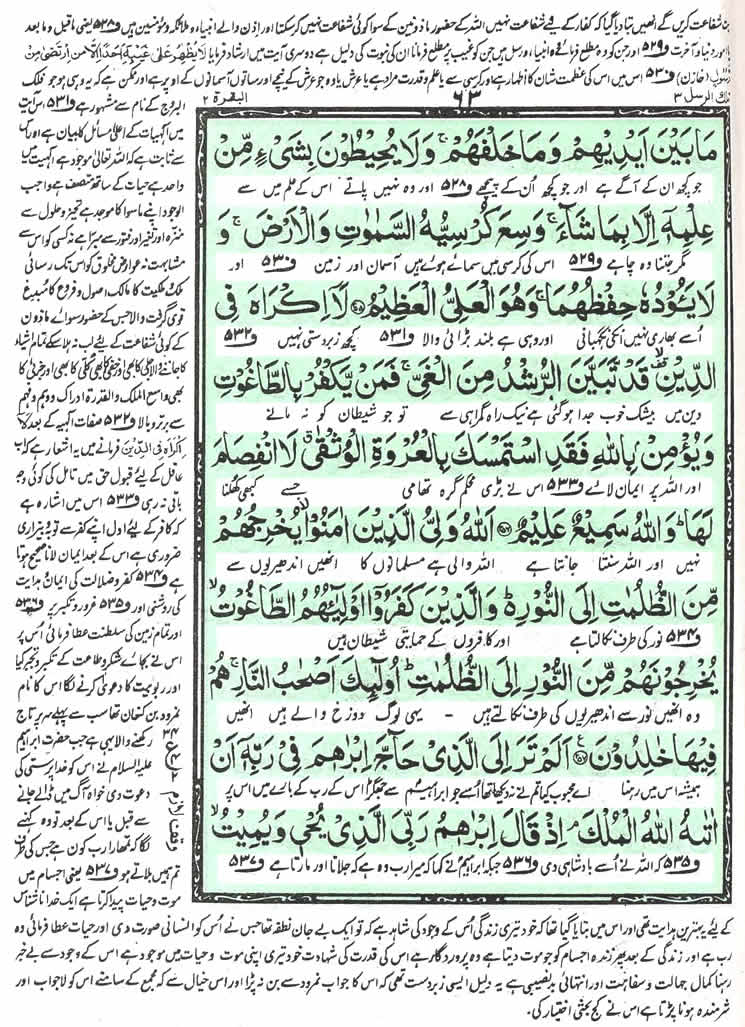 بن شفاعت کریں گے انھیں بتا دیا گیا کہ کفار کے لیے شفاعت نہیں اللہ کے حضور ماذونین کے سوا کوئی شفاعت نہیں کر سکتا اور اِذن والے انبیاء و ملائکہ و مؤمنین ہیں ف۵۲۸ یعنی ماقبل و مابعد
یا امور دنیا و آخرت ف۵۲۹ اور جن کو وہ مطلع فرمائے وہ انبیاء و رسل ہیں جن کو غیب پر مطلع فرمانا ان کی نبوت کی دلیل ہے دوسری آیت میں ارشاد فرمایا لَا يُظْهِرُ عَلٰى غَيْبِهٖٓ اَحَدًا اِلَّا مَنِ ارْتَضٰى مِنْ
رَّسُوْلٍ (خازن) ف۵۳۰ اس میں اس کی عظمت شان کا اظہار ہے اور کرسی سے یا علم و قدرت مراد ہے یا عرش یا وہ جو عرش کے نیچے اور ساتوں آسمانوں کے اوپر ہے اور ممکن ہے کہ یہ وہی ہو جو فلک
تلك الرسل ۳
۶۳
البقرة ۲
مَا بَيْنَ اَيْدِيْهِمْ وَمَا خَلْفَهُمْ ۚ وَلَا يُحِيْطُوْنَ بِشَىْءٍ مِّنْ
جو کچھ ان کے آگے ہے اور جو کچھ اُن کے پیچھے ف۵۲۸ اور وہ نہیں پاتے اس کے علم میں سے
عِلْمِهٖٓ اِلَّا بِمَا شَآءَ ۚ وَسِعَ كُرْسِيُّهُ السَّمٰوٰتِ وَالْاَرْضَ ۚ وَ
مگر جتنا وہ چاہے ف۵۲۹ اس کی کرسی میں سمائے ہوئے ہیں آسمان اور زمین ف۵۳۰ اور
لَا يَـُٔوْدُهٗ حِفْظُهُمَا ۚ وَهُوَ الْعَلِىُّ الْعَظِيْمُ ﴿۲۵۵﴾ لَآ اِكْرَاهَ فِى
اُسے بھاری نہیں انکی نگہبانی اور وہی ہے بلند بڑائی والا ف۵۳۱ کچھ زبردستی نہیں ف۵۳۲
الدِّيْنِ ۙ قَدْ تَّبَيَّنَ الرُّشْدُ مِنَ الْغَىِّ ۚ فَمَنْ يَّكْفُرْ بِالطَّاغُوْتِ
دین میں بیشک خوب جدا ہو گئی ہے نیک راہ گمراہی سے تو جو شیطان کو نہ مانے
وَيُؤْمِنْ بِاللّٰهِ فَقَدِ اسْتَمْسَكَ بِالْعُرْوَةِ الْوُثْقٰى ۗ لَا انْفِصَامَ
اور اللہ پر ایمان لائے ف۵۳۳ اس نے بڑی محکم گرہ تھامی جسے کبھی کھلنا
لَهَا ؕ وَاللّٰهُ سَمِيْعٌ عَلِيْمٌ ﴿۲۵۶﴾ اَللّٰهُ وَلِىُّ الَّذِيْنَ اٰمَنُوْا ۙ يُخْرِجُهُمْ
نہیں اور اللہ سنتا جانتا ہے اللہ والی ہے مسلمانوں کا انھیں اندھیریوں سے
مِّنَ الظُّلُمٰتِ اِلَى النُّوْرِ ؕ وَالَّذِيْنَ كَفَرُوْٓا اَوْلِيٰٓـُٔهُمُ الطَّاغُوْتُ ۙ
ف۵۳۴ نور کی طرف نکالتا ہے اور کافروں کے حمایتی شیطان ہیں
يُخْرِجُوْنَهُمْ مِّنَ النُّوْرِ اِلَى الظُّلُمٰتِ ؕ اُولٰٓئِكَ اَصْحٰبُ النَّارِ ۚ هُمْ
وہ انھیں نور سے اندھیریوں کی طرف نکالتے ہیں - یہی لوگ دوزخ والے ہیں انھیں
فِيْهَا خٰلِدُوْنَ ﴿۲۵۷﴾ اَلَمْ تَرَ اِلَى الَّذِىْ حَآجَّ اِبْرٰهٖمَ فِىْ رَبِّهٖٓ اَنْ
ہمیشہ اس میں رہنا اے محبوب کیا تم نے نہ دیکھا تھا اُسے جو ابراہیم سے جھگڑا اس کے رب کے بارے میں اس پر
اٰتٰىهُ اللّٰهُ الْمُلْكَ ۘ اِذْ قَالَ اِبْرٰهٖمُ رَبِّىَ الَّذِىْ يُحْىٖ وَيُمِيْتُ ۙ
ف۵۳۵ کہ اللہ نے اُسے بادشاہی دی ف۵۳۶ جبکہ ابراہیم نے کہا کہ میرا رب وہ ہے کہ جلاتا اور مارتا ہے ف۵۳۷
البروج کے نام سے مشہور ہے ف۵۳۱ اس آیت
میں الٰہیات کے اعلیٰ مسائل کا بیان ہے اور اس
سے ثابت ہے کہ اللہ تعالیٰ موجود ہے الٰہیت میں
واحد ہے حیات کے ساتھ متصف ہے واجب
الوجود اپنے ماسوا کا موجد ہے تحیز و حلول سے
منزہ اور تغیر اور فتور سے مبرا ہے نہ کسی کو اس سے
مشابہت نہ عوارض مخلوق کو اس تک رسائی
ملک و ملکوت کا مالک اصول و فروع کا مُبدِع
قوی گرفت والا جس کے حضور سوائے ماذون
کے کوئی شفاعت کے لیے لب نہ ہلا سکے تمام اشیاء
کا جاننے والا جلی کا بھی اور خفی کا بھی کلی کا بھی اور جزئی کا
بھی واسع الملک و القدرۃ ادراک و وہم و فہم
سے برتر و بالا ف۵۳۲ صفات الٰہیہ کے بعد لَآ
اِكْرَاهَ فِى الدِّيْنِ فرمانے میں یہ اشعار ہے کہ اب
عاقل کے لیے قبول حق میں تامل کی کوئی وجہ
باقی نہ رہی ف۵۳۳ اس میں اشارہ ہے
کہ کافر کے لیے اول اپنے کفر سے توبہ و بیزاری
ضروری ہے اس کے بعد ایمان لانا صحیح ہوتا
ہے ف۵۳۴ کفر و ضلالت کی ایمان و ہدایت
کی روشنی اور ف۵۳۵ غرور و تکبر پر ف۵۳۶
اور تمام زمین کی سلطنت عطا فرمائی اس پر
اس نے بجائے شکر و طاعت کے تکبر و تجبر کیا
اور ربوبیت کا دعویٰ کرنے لگا اس کا نام
نمرود بن کنعان تھا سب سے پہلے سر پر تاج
رکھنے والا یہی ہے جب حضرت ابراہیم
علیہ السلام نے اس کو خدا پرستی کی
دعوت دی خواہ آگ میں ڈالے جانے
سے قبل یا اس کے بعد تو وہ کہنے
لگا کہ تمھارا رب کون ہے جس کی طرف
تم ہمیں بلاتے ہو ف۵۳۷ یعنی اجسام میں
موت و حیات پیدا کرتا ہے ایک خدا ناشناس
۳۴
ع
۲
وقف لازم
کے لیے یہ بہترین ہدایت تھی اور اس میں بتایا گیا تھا کہ خود تیری زندگی اُس کے وجود کی شاہد ہے کہ تو ایک بے جان نطفہ تھا جس نے اُس کو انسانی صورت دی اور حیات عطا فرمائی وہ
رب ہے اور زندگی کے بعد پھر زندہ اجسام کو جو موت دیتا ہے وہ پروردگار ہے اس کی قدرت کی شہادت خود تیری اپنی موت و حیات میں موجود ہے اس کے وجود سے بے خبر
رہنا کمال جہالت و سفاہت اور انتہائی بدنصیبی ہے یہ دلیل ایسی زبردست تھی کہ اس کا جواب نمرود سے بن نہ پڑا اور اس خیال سے کہ مجمع کے سامنے اس کو لاجواب اور
شرمندہ ہونا پڑتا ہے اس نے کج بحثی اختیار کی۔